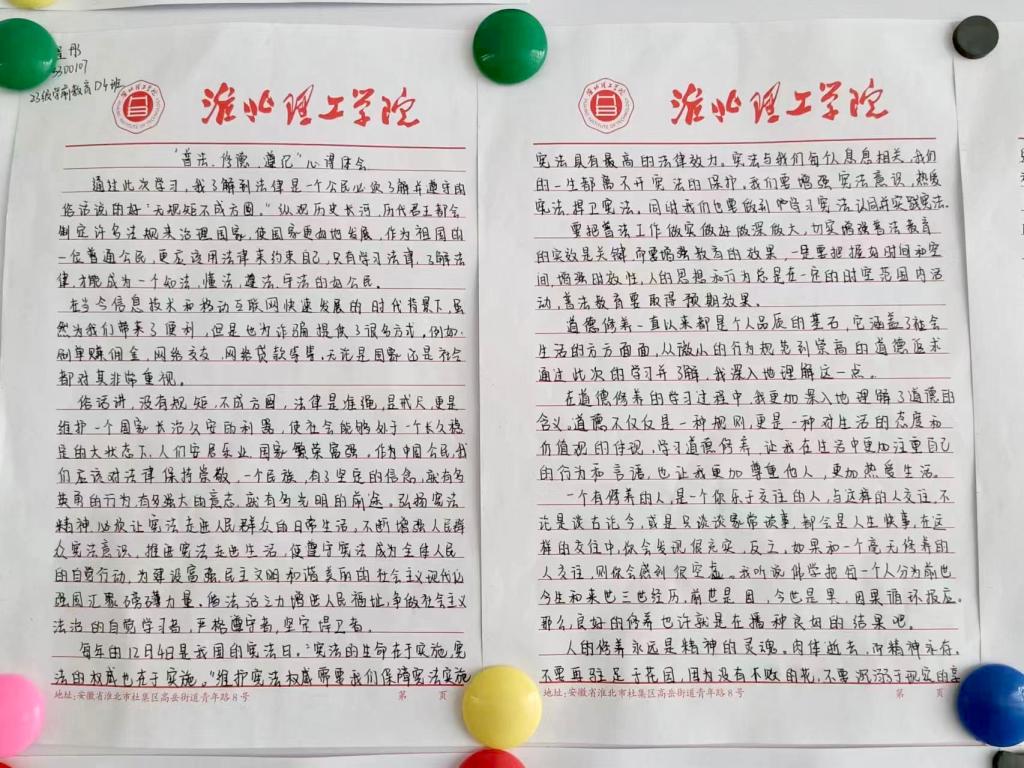 昱彤
300107
23级学前教育04班
淮北理工学院
“普法、修德、遵纪”心得体会
通过此次学习，我了解到法律是一个公民必须了解并遵守的
俗话说的好“无规矩不成方圆。”纵观历史长河，历代君王都会
制定许多法规来治理国家，使国家更好地发展，作为祖国的
一位普通公民，更应该用法律来约束自己，只有学习法律，了解法
律，才能成为一个知法，懂法，遵法，守法的好公民。
在当今信息技术和移动互联网快速发展的时代背景下，虽
然为我们带来了便利，但是也为诈骗提供了很多方式，例如：
刷单赚佣金，网络交友，网络贷款等等，无论是国家还是社会
都对其非常重视。
俗话讲，没有规矩，不成方圆，法律是准绳，是戒尺，更是
维护一个国家长治久安的利器，使社会能够处于一个长久稳
定的大状态下，人们安居乐业，国家繁荣富强，作为中国公民，我
们应该对法律保持崇敬，一个民族，有了坚定的信念，就有多
英勇的行为，有多强大的意志，就有多光明的前途。弘扬宪法
精神，必须让宪法走进人民群众的日常生活，不断增强人民群
众宪法意识，推进宪法走进生活，使遵守宪法成为全体人民
的自觉行动，为建设富强民主文明和谐美丽的社会主义现代化
强国汇聚磅礴力量。用法治之力增进人民福祉，争做社会主义
法治的自觉学习者，严格遵守者，坚定捍卫者。
每年的12月4日是我国的宪法日。“宪法的生命在于实施，宪
法的权威也在于实施。”维护宪法权威需要我们保障宪法实施
地址：安徽省淮北市杜集区高岳街道青年路8号 第 页
淮北理工学院
宪法具有最高的法律效力。宪法与我们每个人息息相关，我们
的一生都离不开宪法的保护。我们要增强宪法意识，热爱
宪法，捍卫宪法。同时我们也要做到严学习宪法，认同并实践宪法。
要把普法工作做实做好做深做大，切实增强普法教育
的实效是关键，而要增强教育的效果，一是要把握好时间和空
间，增强时效性，人的思想和行为总是在一定的时空范围内活
动，普法教育要取得预期效果。
道德修养一直以来都是个人品质的基石，它涵盖了社会
生活的方方面面，从微小的行为规范到崇高的道德追求
通过此次的学习并了解，我深入地理解这一点。
在道德修养的学习过程中，我更加深入地理解了道德的
含义。道德不仅仅是一种规则，更是一种对生活的态度和
价值观的体现，学习道德修养，让我在生活中更加注重自己
的行为和言语，也让我更加尊重他人，更加热爱生活。
一个有修养的人，是一个你乐于交往的人，与这样的人交往，不
论是谈古论今，或是只谈谈家常琐事，都会是人生快事，在这
样的交往中，你会发现很充实，反之，如果和一个毫无修养的
人交往，则你会感到很空虚。我听说佛学把每一个人分为前世
今生和来世三世经历，前世是因，今世是果，因果循环报应。
那么，良好的修养也许就是在播种良好的结果吧。
人的修养永远是精神的灵魂，肉体逝去，而精神永存。
不要再驻足于花园，因为没有不败的花，不要沉溺于现实的喜
地址：安徽省淮北市杜集区高岳街道青年路8号 第 页